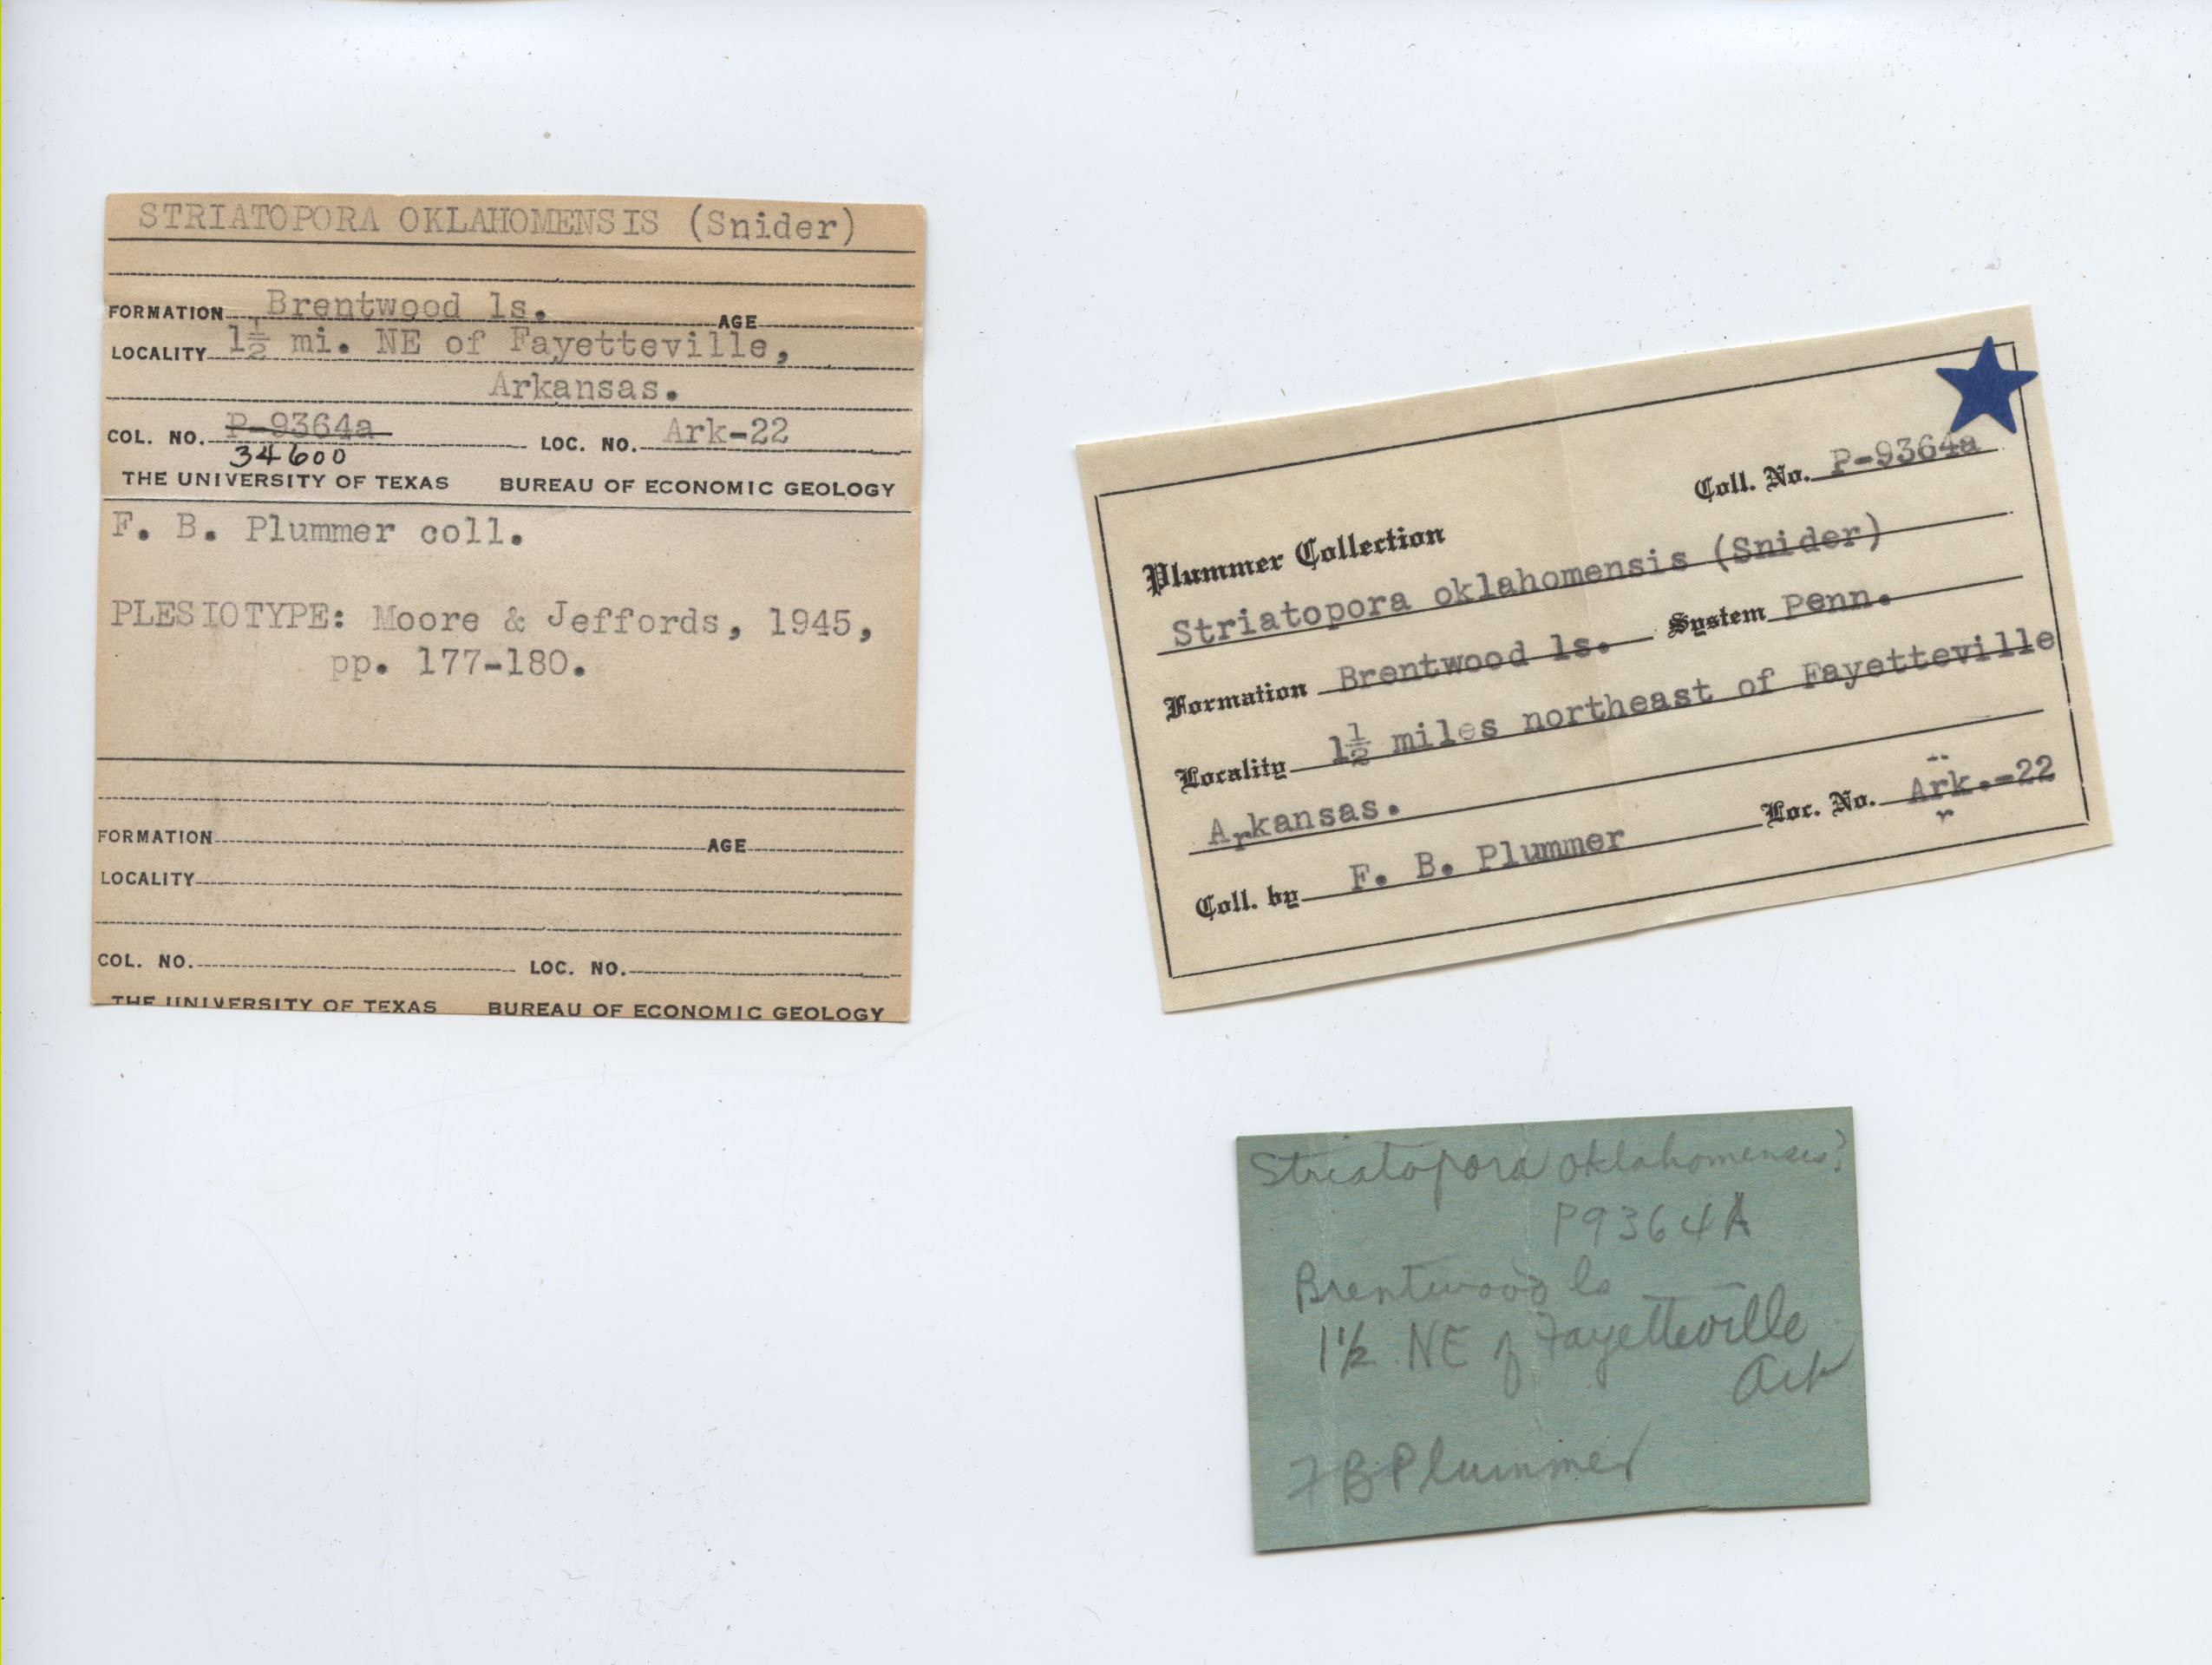 STRIATOPORA OKLAHOMENSIS (Snider)
FORMATION Brentwood ls. AGE
LOCALITY 1½ mi. NE of Fayetteville,
Arkansas.
COL. NO. P-9364a LOC. NO. Ark-22
34600
THE UNIVERSITY OF TEXAS BUREAU OF ECONOMIC GEOLOGY
F. B. Plummer coll.
PLESIOTYPE: Moore & Jeffords, 1945,
pp. 177-180.
FORMATION AGE
LOCALITY
COL. NO. LOC. NO.
THE UNIVERSITY OF TEXAS BUREAU OF ECONOMIC GEOLOGY
Coll. No. P-9364a
Plummer Collection
Striatopora oklahomensis (Snider)
Formation Brentwood ls. System Penn.
Locality 1½ miles northeast of Fayetteville
Arkansas.
Coll. by F. B. Plummer Loc. No. Ark.-22
Striatopora oklahomensis?
P9364A
Brentwood ls
1½ NE of Fayetteville
Ark
F B Plummer